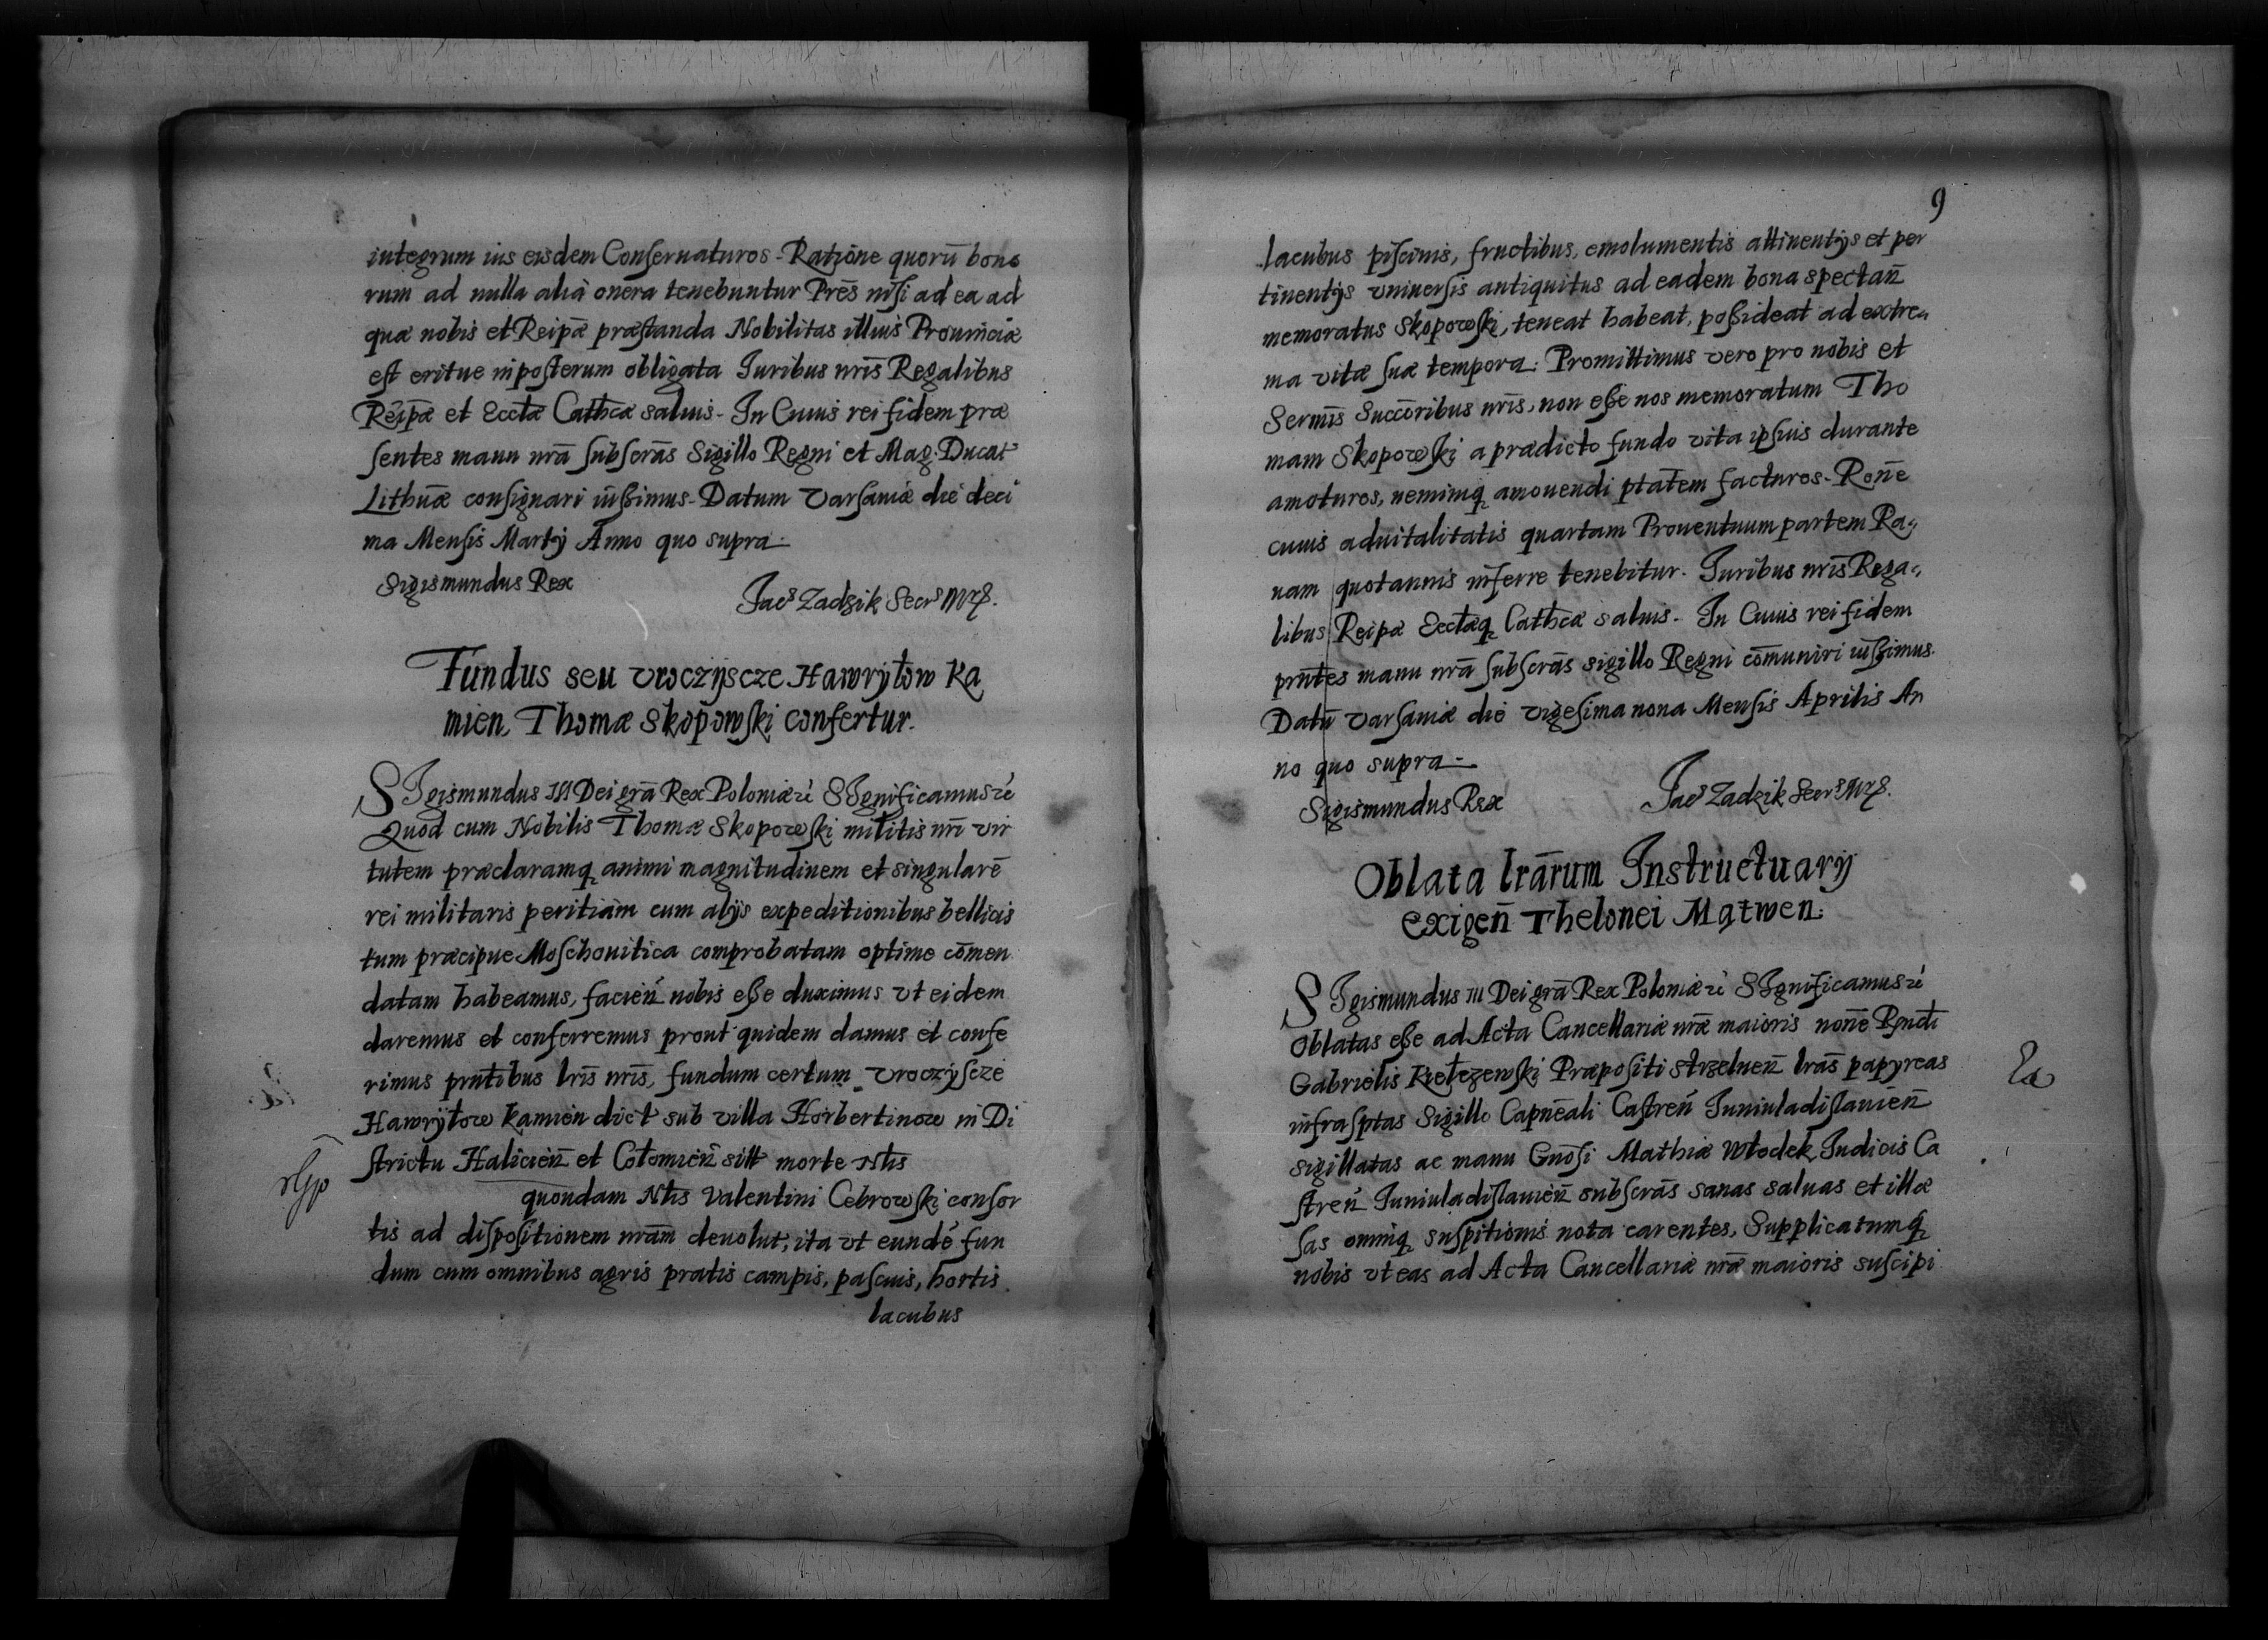 integrum ius eisdem Conseruaturos - Ratione quorū bono
rum ad nulla alia onera tenebuntur Prēs nisi ad ea ad
quæ nobis et Reipæ præstanda Nobilitas illius Prouinciæ
est eritue inposterum obligata Iuribus nrīs Regalibus
Reipæ et Ecctæ Cathcæ saluis - In Cuius rei fidem præ
sentes manu nrā subscrās Sigillo Regni et Mag. Ducat
Lithuæ consignari iussimus - Datum Varsauiæ die deci
ma Mensis Martij Anno quo supra
Sigismundus Rex
Jacs Zadzik Secrs
Fundus seu vroczÿscze Hawrÿłow Ka
mien, Thomæ Skopowski confertur.
SIgismundus III Dei grā Rex Poloniæ rč SIgnificamus rč
Quod cum Nobilis Thomæ Skopowski militis nrī vir
tutem præclaramq animi magnitudinem et singularē
rei militaris peritiam cum alijs expeditionibus bellicis
tum præcipue Moschouitica comprobatam optime cōmen
datam habeamus, facień nobis esse duximus vt eidem
daremus et conferremus prout quidem damus et confe
rimus prntibus lrīs nrīs, fundum certum vroczÿscze
Hawrÿłow kamien dict sub villa Horbertinow in Di
strictu Halicień et Cołomień sitt morte Nlis
quondam Nlis Valentini Cebrowski consor
tis ad dispositionem nrām deuolut, ita vt eundē fun
dum cum omnibus agris pratis campis, pascuis, hortis
lacubus
9
lacubus piscinis, fructibus, emolumentis attinentijs et per
tinentijs vniuersis antiquitus ad eadem bona spectań
memoratus Skopowski, teneat habeat, possideat ad extre
ma vitæ suæ tempora: Promittimus vero pro nobis et
Sermīs Succōribus nrīs, non esse nos memoratum Tho
mam Skopowski a prædicto fundo vita ipsuis durante
amoturos, neminiq amouendi ptatem facturos - Rone
cuius aduitalitatis quartam Prouentuum partem Ra
uam quotannis inferre tenebitur. Iuribus nrīs Rega
libus Reipæ Ecctæq Cathcæ saluis - In Cuius rei fidem
prntes manu nrā subscrās sigillo Regni cōmuniri iussimus.
Datū Varsauiæ die vigesima nona Mensis Aprilis An
no quo supra
Sigismundus Rex
Jacs Zadzik Secrs
Oblata lrārum Instructuarÿ
exigeń Thelonei Mątwen:
SIgismundus III Dei grā Rex Poloniæ rč SIgnificamus rč
Oblatas esse ad Acta Cancellariæ nræ maioris none Rńdi
Gabrielis Kiełczewski Præpositi Strzelneń lrās papyreas
infrasptas Sigillo Capneali Castreń Iuniuladislauień
sigillatas ac manu Gnōsi Mathiæ Włodek Iudicis Ca
streń Iuniuladislauień subscrās sanas saluas et illæ
sas omniq suspitionis nota carentes, Supplicatumq
nobis vt eas ad Acta Cancellariæ nræ maioris suscipi